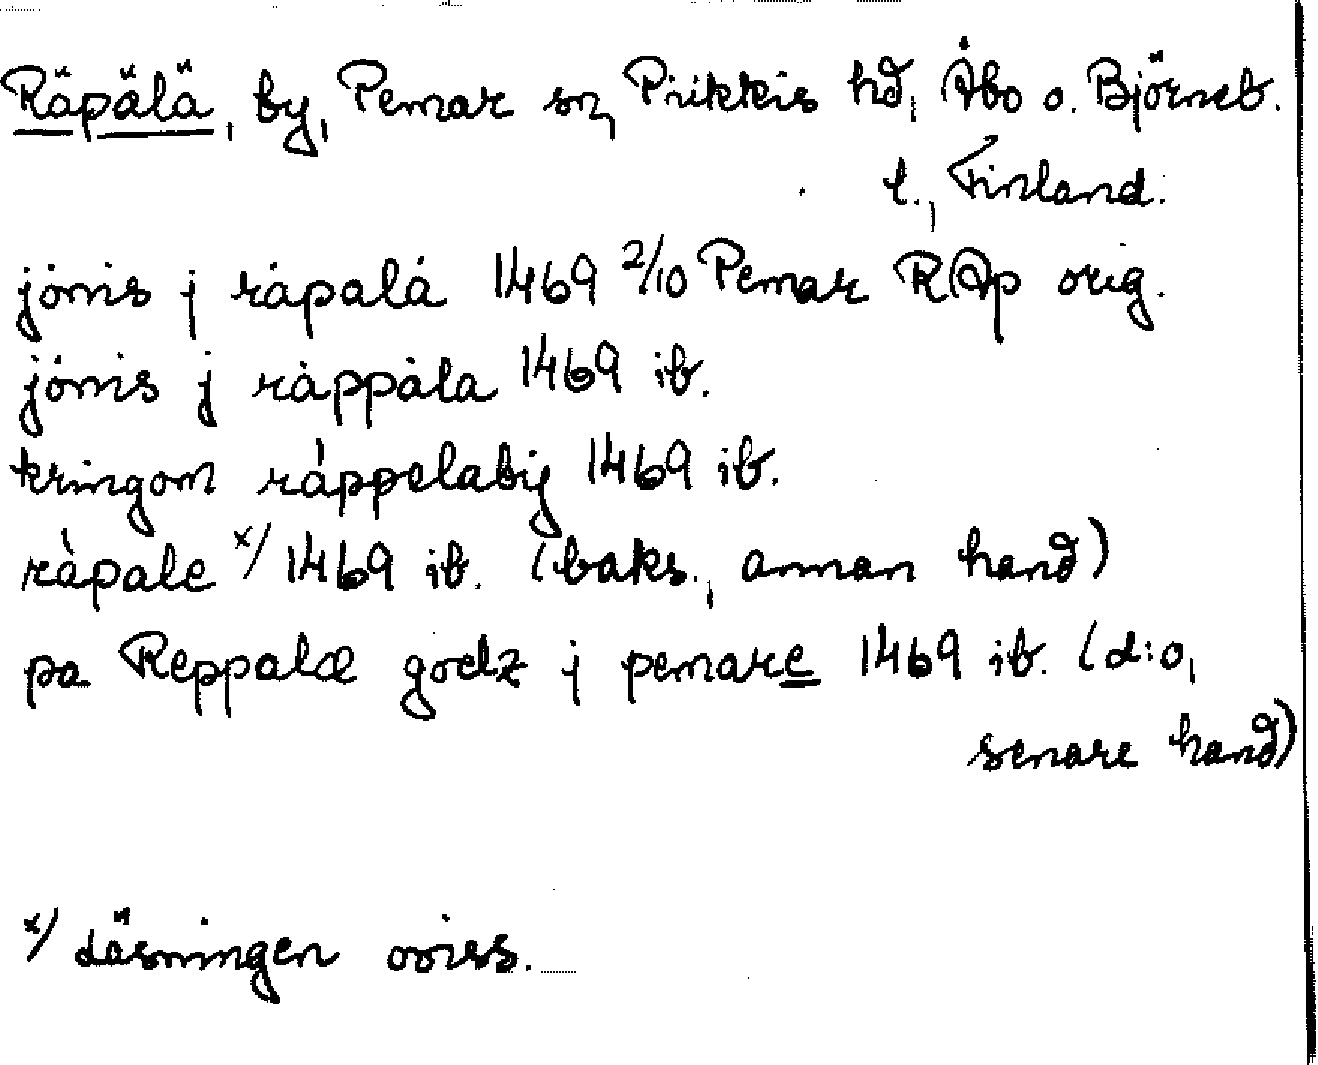 Räpälä, by, Pemar sn, Priikkis hd, Åbo o. Björneb.
l., Finland.
jönis j råpalå 1469 2/10 Pemar RAp orig.
jönis j råppåla 1469 ib.
kringom råppelabig 1469 ib.
råpale x/ 1469 ib. (baks., annan hand)
pa Reppalæ godz j pemare 1469 ib. (d:o,
senare hand)
x/ Läsningen oviss.